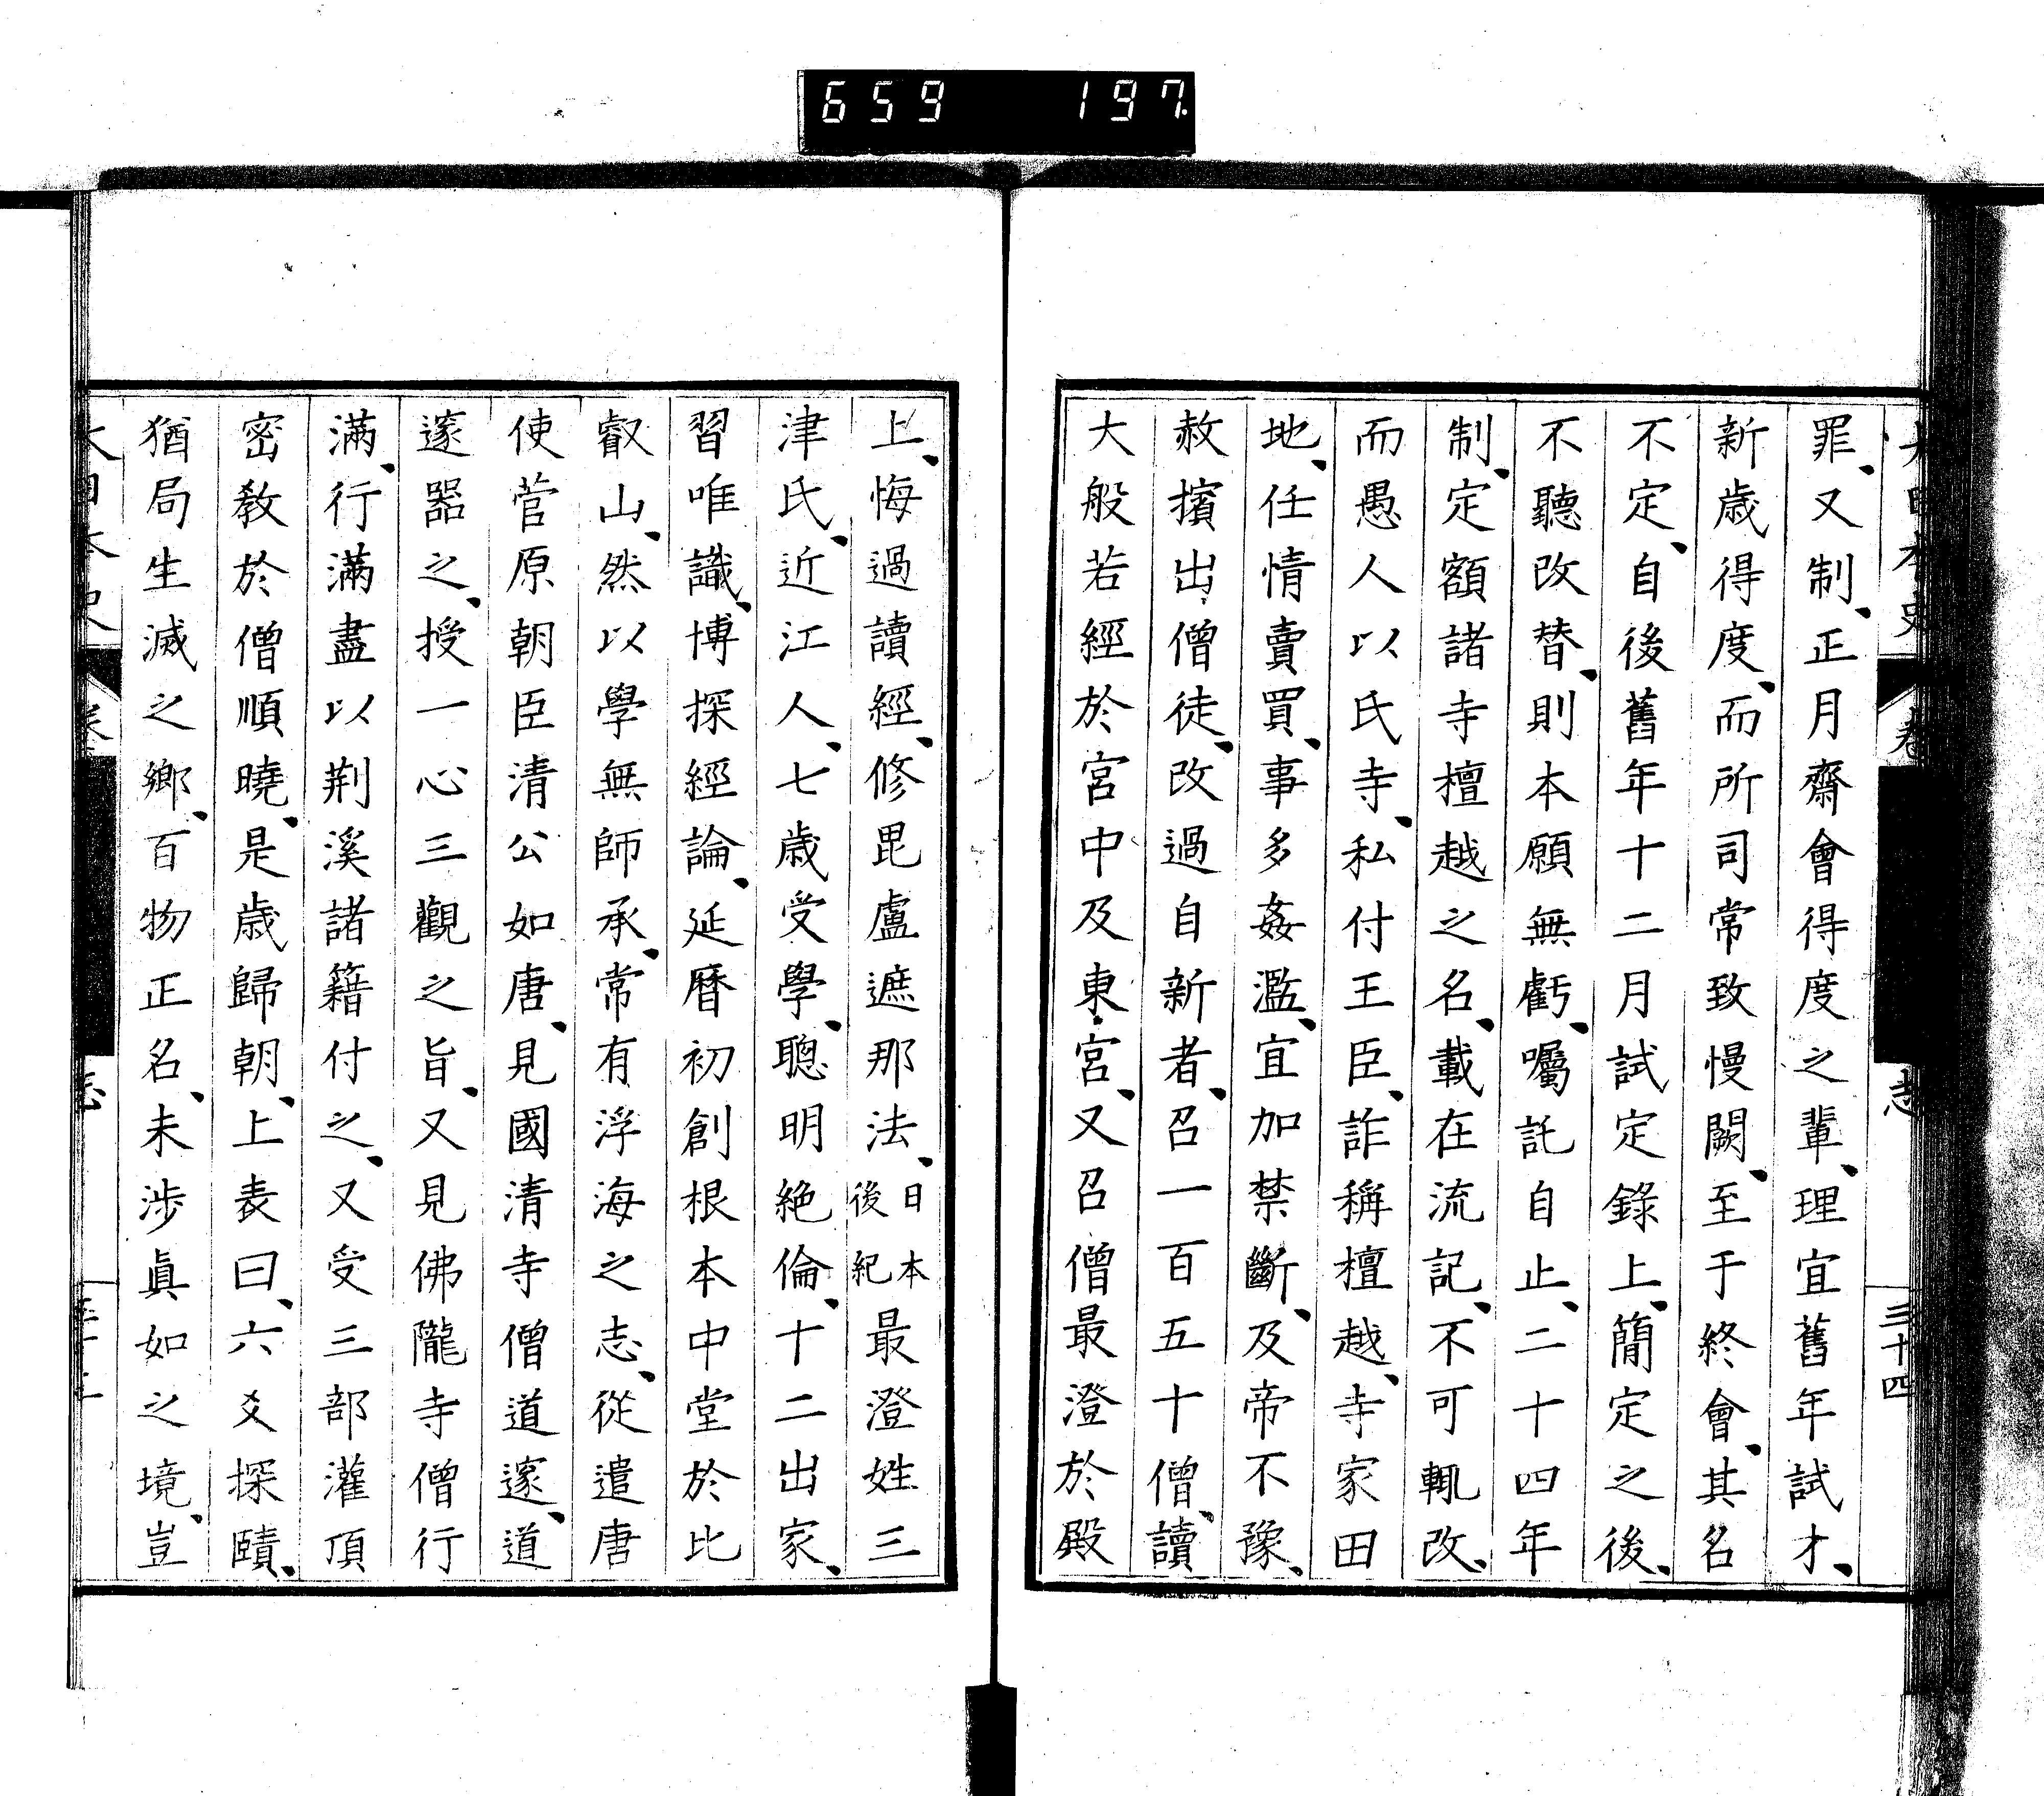 659 197
罪、又制、正月齋會得度之輩、理宜舊年試才、
新歲得度、而所司常致慢闕、至于終會、其名
不定、自後舊年十二月試定錄上、簡定之後、
不聽改替、則本願無虧、囑託自止、二十四年
制、定額諸寺檀越之名、載在流記、不可輒改、
而愚人以氏寺、私付王臣、詐稱檀越、寺家田
地、任情賣買、事多姦濫、宜加禁斷、及帝不豫、
赦擯出僧徒、改過自新者、召一百五十僧、讀
大般若經於宮中及東宮、又召僧最澄於殿
三十四
上、悔過讀經、修毘盧遮那法、日本後紀最澄姓三
津氏、近江人、七歲受學、聰明絶倫、十二出家、
習唯識、博探經論、延曆初創根本中堂於比
叡山、然以學無師承、常有浮海之志、從遣唐
使菅原朝臣清公如唐、見國清寺僧道邃、道
邃器之、授一心三觀之旨、又見佛隴寺僧行
滿、行滿盡以荆溪諸籍付之、又受三部灌頂
密敎於僧順曉、是歲歸朝、上表曰、六爻探賾、
猶局生滅之鄉、百物正名、未涉眞如之境、豈